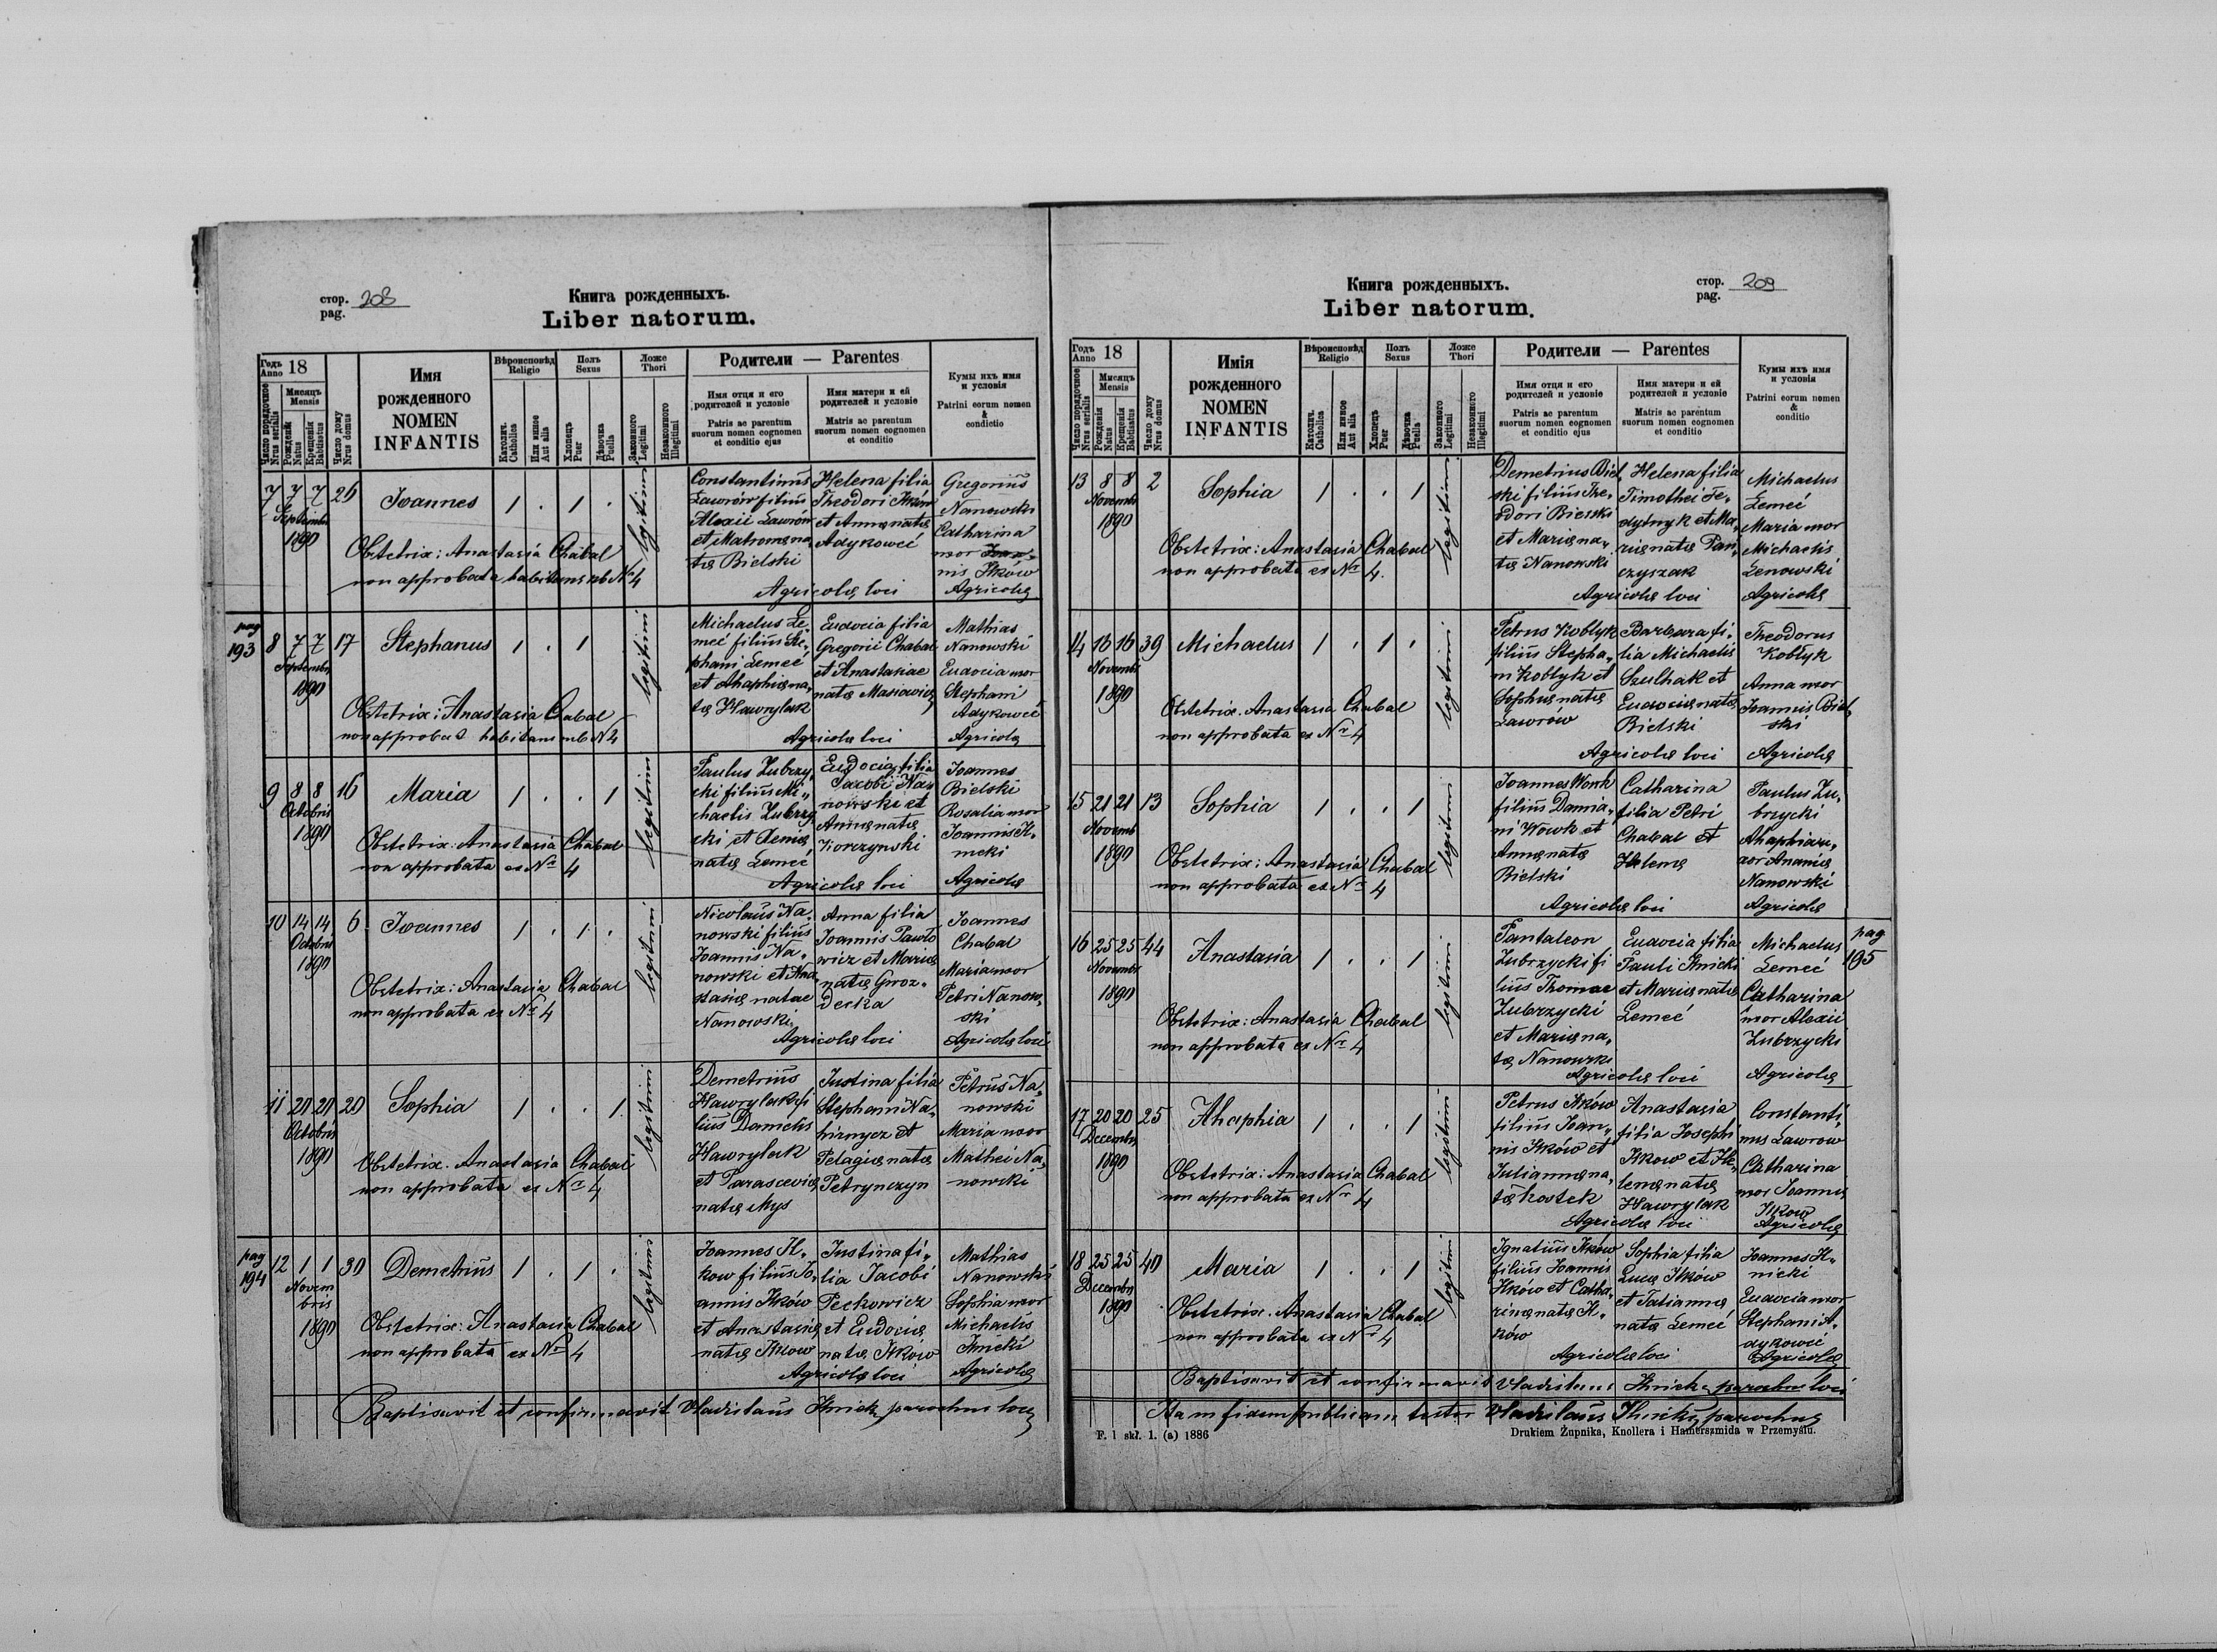 стор. 208
pag.
Книга рожденныхъ.
Liber natorum.
Годъ
Anno 18
Мисяцъ
Mensis
Число порядочное
Nrus serialis
Рожденія
Natus
Крещенія
Babtisatus
Число дому
Nrus domus
Имя
рожденного
NOMEN
INFANTIS
Вѣроисповѣд
Religio
Католич.
Catholica
Или инное
Aut alia
Полъ
Sexus
Хлопець
Puer
Дѣвочка
Puella
Ложе
Thori
Законного
Legitimi
Незаконного
Illegitimi
Родители — Parentes
Имя отця и его
родителей и условіе
Patris ac parentum
suorum nomen cognomen
et conditio ejus
Имя матери и ей
родителей и условіе
Matris ac parentum
suorum nomen cognomen
et conditio
Кумы ихъ имя
и условія
Patrini eorum nomen
&
condictio
7 7 7 26 Joannes 1 . 1 . legitimi
Septembr
1890
Obstetrix: Anastasia Chabal
non approbata habitans sub Nr 4
Constantinus
Lawrów filius
Alexii Lawrów
et Matronæ na
tæ Bielski
Helena filia
Theodori Ilków
et Annæ natæ
Adykoweć
Agricolæ loci
Gregorius
Nanowski
Catharina
uxor Joan
nis Ilków
Agricolæ
pag
193 8 7 7 17 Stephanus 1 . 1 legitimi
Septembr
1890
Obstetrix: Anastasia Chabal
non approbat habitans sub N 4
Michaelus Le„
meć filius Ste„
phani Lemeć
et Ahaphiæ na„
tæ Hawrylak
Eudocia filia
Gregorii Chabal
et Anastasiae
natæ Masiowicz
Agricolæ loci
Mathias
Nanowski
Eudocia uxor
Stephani
Adykoweć
Agricolæ
9 8 8 16 Maria 1 . . 1 legitimi
Octobris
1890
Obstetrix: Anastasia Chabal
non approbata ex Nr 4
Paulus Zubrzy„
cki filius Mi„
chaelis Zubrzy
cki et Xeniæ
natæ Lemeć
Eudocia filia
Jacobi Na„
nowski et
Annæ natæ
Korczynski
Agricolæ loci
Joannes
Bielski
Rosalia uxor
Joannis Il„
nicki
Agricolæ
10 14 14 6 Joannes 1 . 1 . legitimi
Octobris
1890
Obstetrix: Anastasia Chabal
non approbata ex Nr 4
Nicolaus Na„
nowski filius
Joannis Na„
nowski et Ana
stasiæ natae
Nanowski
Anna filia
Joannis Pawło
wicz et Mariæ
natæ Gwoz„
decka
Agricolæ loci
Joannes
Chabal
Maria uxor
Petri Nanow„
ski
Agricolæ loci
11 20 20 20 Sophia 1 . . 1 legitimi
Octobris
1890
Obstetrix. Anastasia Chabal
non approbata ex Nr 4
Demetrius
Hawrylak fi
lius Danielis
Hawrylak
et Parasceviæ
natæ Mys
Justina filia
Stephani Na„
hirnycz et
Pelagiæ natæ
Petrynczyn
Petrus Na„
nowski
Maria uxor
Mathei Na„
nowski
pag
194 12 1 1 30 Demetrius 1 . 1 . legitimi
Novem
bris
1890
Obstetrix: Anastasia Chabal
non approbata ex Nr 4
Joannes Il„
kow filius Jo„
annis Ilków
et Anastasiæ
natæ Ilkow
Justina fi„
lia Jacobi
Peckowicz
et Eudociæ
natæ Ilkow
Agricolæ loci
Mathias
Nanowski
Sophia uxor
Michaelis
Ilnicki
Agricolæ
Baptisavit et confirmavit Vladislaus Ilnicki parochus loci
стор. 209
pag.
Книга рожденныхъ.
Liber natorum.
Годъ
Anno 18
Мисяцъ
Mensis
Число порядочное
Nrus serialis
Рожденія
Natus
Крещенія
Babtisatus
Число дому
Nrus domus
Имія
рожденного
NOMEN
INFANTIS
Вѣроисповѣд
Religio
Католич.
Catholica
Или инное
Aut alia
Полъ
Sexus
Хлопець
Puer
Дѣвочка
Puella
Ложе
Thori
Законного
Legitimi
Незаконного
Illegitimi
Родители — Parentes
Имя отця и его
родителей и условіе
Patris ac parentum
suorum nomen cognomen
et conditio ejus
Имя матери и ей
родителей и условіе
Matris ac parentum
suorum nomen cognomen
et conditio
Кумы ихъ имя
и условія
Patrini eorum nomen
&
conditio
13 8 8 2 Sophia 1 . . 1 legitimi
Novembr
1890
Obstetrix: Anastasia Chabal
non approbata ex Nr 4.
Demetrius Biel
ski filius The„
odori Bielski
et Mariæ na„
tæ Nanowski
Helena filia
Timothei Fe„
dytnyk et Ma„
riæ natæ Pan„
czyszak
Agricolæ loci
Michaelus
Lemeć
Maria uxor
Michaelis
Lenowski
Agricolæ
14 16 16 39 Michaelus 1 . 1 . legitimi
Novembr
1890
Obstetrix. Anastasia Chabal
non approbata ex Nr 4
Petrus Koblyk
filius Stepha„
ni Koblyk et
Sophiæ natæ
Lawrów
Barbara fi„
lia Michaelis
Szulhak et
Eudociæ natæ
Bielski
Agricolæ loci
Theodorus
Kobłyk
Anna uxor
Joannis Biel„
ski
Agricolæ
15 21 21 13 Sophia 1 . . 1 legitimi
Novemb
1890
Obstetrix: Anastasia Chabal
non approbata ex Nr 4
Joannes Wowk
filius Damia„
ni Wowk et
Annæ natæ
Bielski
Catharina
filia Petri
Chabal et
Helenæ
Agricolæ loci
Paulus Zu„
brzycki
Ahaphia u„
xor Ananiæ
Nanowski
Agricolæ
16 25 25 44 Anastasia 1 . . 1 legitimi
Novembr
1890
Obstetrix: Anastasia Chabal
non approbata ex Nr 4
Pantaleon
Zubrzycki fi
lius Thomae
Zubrzycki
et Mariæ na„
tæ Nanowski
Eudocia filia
Pauli Ilnicki
et Mariæ natæ
Lemeć
Agricolæ loci
Michaelus
Lemeć
Catharina
uxor Alexii
Zubrzycki
Agricolæ
pag
195
17 20 20 25 Ahaphia 1 . . 1 legitimi
Decembr
1890
Obstetrix: Anastasia Chabal
non approbata ex Nr 4
Petrus Ilków
filius Joan„
nis Ilków et
Juliannæ na„
tæ Kostek
Anastasia
filia Josephi
Ilkow et He„
lenæ natæ
Hawrylak
Agricolæ loci
Constanti„
nus Lawrow
Catharina
uxor Joannis
Ilkow
Agricolæ
18 25 25 40 Maria 1 . . 1 legitimi
Decembr
1890
Obstetrix. Anastasia Chabal
non approbata ex Nr 4
Ignatius Ilków
filius Joannis
Ilków et Catha„
rinæ natæ Il„
ków
Sophia filia
Lucæ Ilków
et Tatiannæ
natæ Lemeć
Agricolæ loci
Joannes Il„
nicki
Eudocia uxor
Stephani A„
dykoweć
Agricolæ
Baptisavit et confirmavit Vladislaus Ilnicki parochus loci
testor Vladislaus Ilnicki parochus
F. I skł. 1. (a) 1886
Drukiem Żupnika, Knollera i Hamerszmida w Przemyślu.